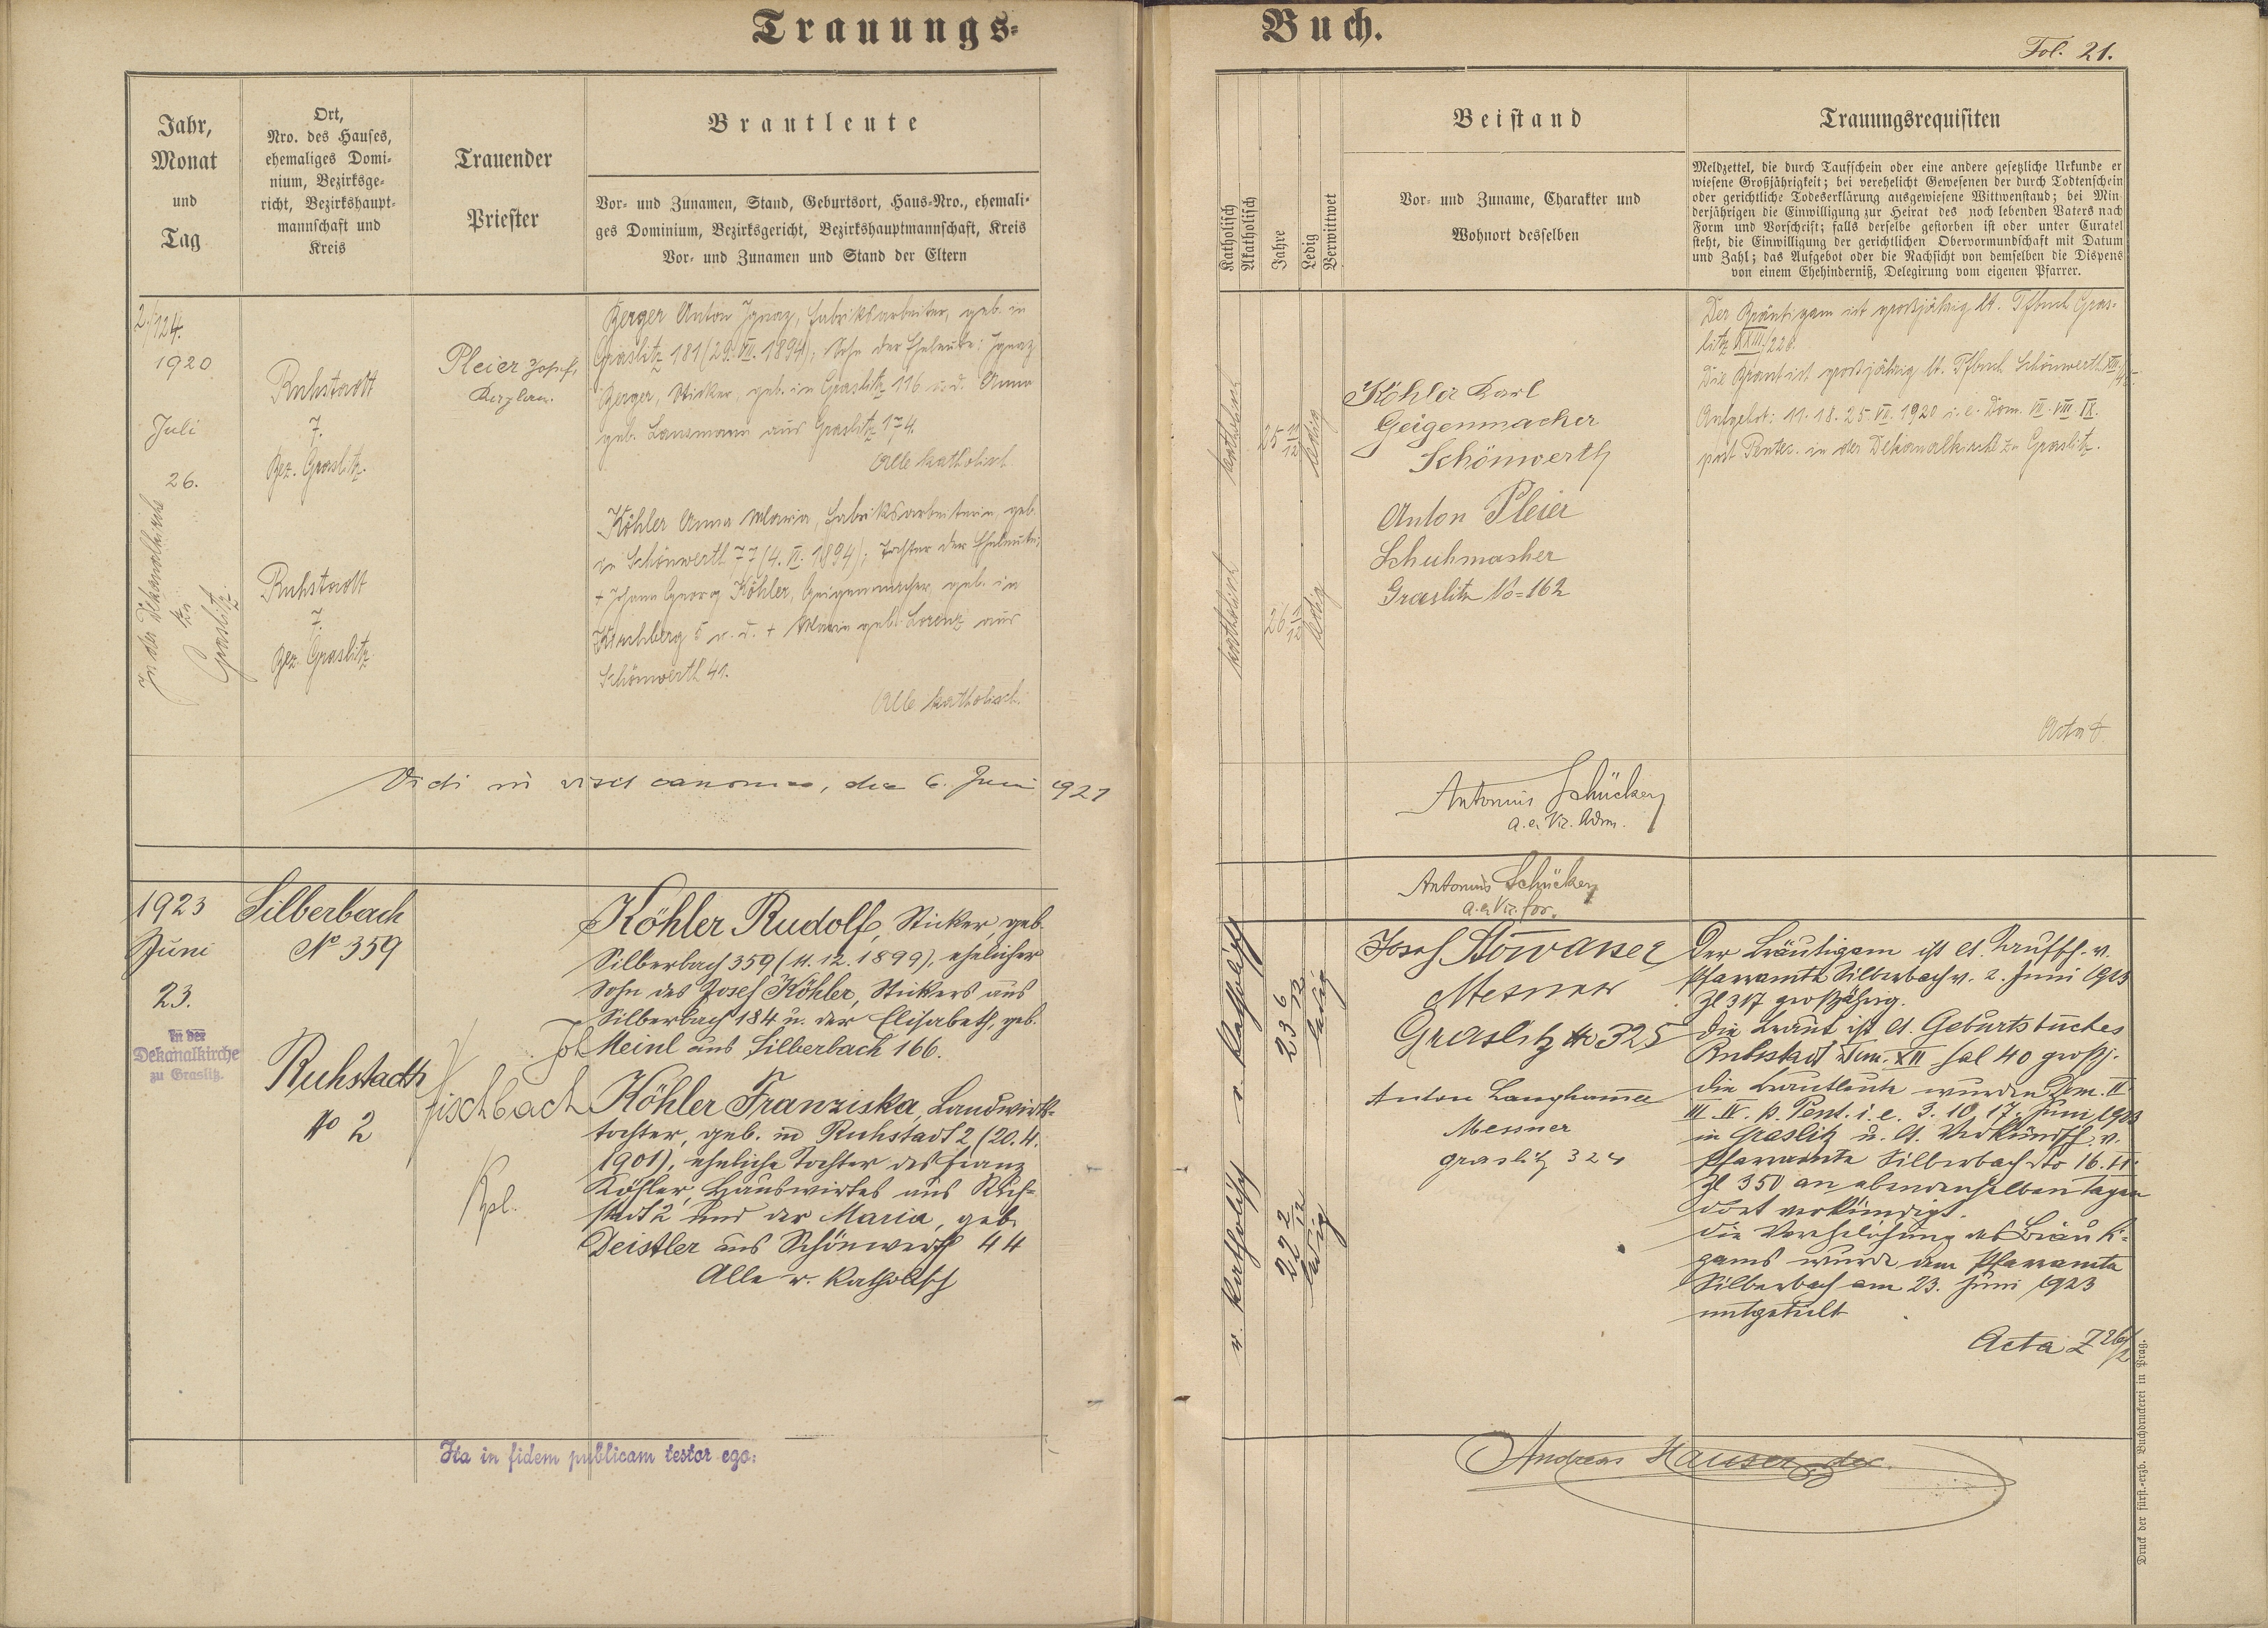 Trauungs-
Buch.
Fol. 21.
Jahr,
Monat
und
Tag
Ort,
Nro. des Hauses,
ehemaliges Domi-
nium, Bezirksge-
richt, Bezirkshaupt-
mannschaft und
Kreis
Trauender
Priester
Brautleute
Vor- und Zunamen, Stand, Geburtsort, Haus-Nro., ehemali-
ges Dominium, Bezirksgericht, Bezirkshauptmannschaft, Kreis
Vor- und Zunamen und Stand der Eltern
Katholisch
Akatholisch
Jahre
Ledig
Verwittwet
Beistand
Vor- und Zuname, Charakter und
Wohnort desselben
Trauungsrequisiten
Meldzettel, die durch Taufschein oder eine andere gesetzliche Urkunde er
wiesene Großjährigkeit; bei verehelicht Gewesenen der durch Todtenschein
oder gerichtliche Todeserklärung ausgewiesene Wittwenstand; bei Min
derjährigen die Einwilligung zur Heirat des noch lebenden Vaters nach
Form und Vorschrift; falls derselbe gestorben ist oder unter Curatel
steht, die Einwilligung der gerichtlichen Obervormundschaft mit Datum
und Zahl; das Aufgebot oder die Nachsicht von demselben die Dispens
von einem Ehehinderniß, Delegirung vom eigenen Pfarrer.
1920
Juli
26.
In der Dekanalkirche
zu
Graslitz.
Ruhstadt
7.
Bez. Graslitz.
Ruhstadt
7.
Bez. Graslitz
Pleier Josef,
Kaplan.
Berger Anton Ignaz, Fabriksarbeiter, geb. in
Graslitz 181 (29. VII. 1894), Sohn der Eheleute: Ignaz
Berger, Sticker, geb. in Graslitz 116 u. d. Anna
geb. Lausmann aus Graslitz 174.
Alle katholisch
Köhler Anna Maria, Fabriksarbeiterin, geb.
in Schönwerth 77 (4. VI. 1894); Tochter der Eheleute:
+ Johann Georg Köhler, Geigenmacher, geb. in
Kirchberg 5 u. d. + Maria geb. Lorenz aus
Schönwerth 41.
Alle katholisch.
katholisch
25 11/12
ledig
katholisch
26 1/12
ledig
Köhler Karl
Geigenmacher
Schönwerth
Anton Pleier
Schuhmacher
Graslitz No=162
Der Bräutigam ist großjährig lt. Tfbuch Gras-
litz XXIII/220.
Die Braut ist großjährig lt. Tfbuch Schönwerth
Aufgebot: 11. 18. 25. VII. 1920 i. e. Dom. VII. VIII. IX.
post Pentec. in der Dekanalkirche zu Graslitz.
Acta
Vidi in visit canonica, die 6. Juni 1921
Antonius Schücker
a.e. Vic. Adm.
Antonius Schücker
a.e. Vic. for.
1923
Juni
23.
In der
Dekanalkirche
zu Graslitz.
Silberbach
No 359
Ruhstadt
No 2
Joh
Fischbach
Kpl.
Köhler Rudolf, Sticker, geb.
Silberbach 359 (11. 12. 1899), ehelicher
Sohn des Josef Köhler, Stickers aus
Silberbach 184 u. der Elisabeth, geb.
Meinl aus Silberbach 166.
Köhler Franziska, Landwirts-
tochter, geb. in Ruhstadt 2 (20. 4.
1901), eheliche Tochter des Franz
Köhler, Hauswirtes aus Ruh-
stadt 2 und der Maria, geb.
Deistler aus Schönwerth 44
Alle r. katholisch
r. katholisch
23 6/12
ledig
r. katholisch
22 2/12
ledig
Josef Stowasser
Mesner
Graslitz No 325
Anton Langhammer
Mesner
Graslitz 324
Der Bräutigam ist lt. Taufsch. v.
Pfarramte Silberbach v. 2. Juni 1923
Zl 317 großjährig.
Die Braut ist lt. Geburtsbuches
Ruhstadt Tom. XII fol 40 großj.
Die Brautleute wurden Dom. II
III. IV. p. Pent. i. e. 3. 10. 17. Juni 1923
in Graslitz u. lt. Verkündsch. v.
Pfarramte Silberbach dto 16. VI.
Zl 350 an ebendenselben Tagen
dort verkündigt.
Die Verehelichung des Bräuti-
gams wurde dem Pfarramte
Silberbach am 23. Juni 1923
mitgeteilt
Acta Z
Ita in fidem publicam testor ego:
Andreas Hauser dec.
Druck der fürst.-erzb. Buchdruckerei in Prag.